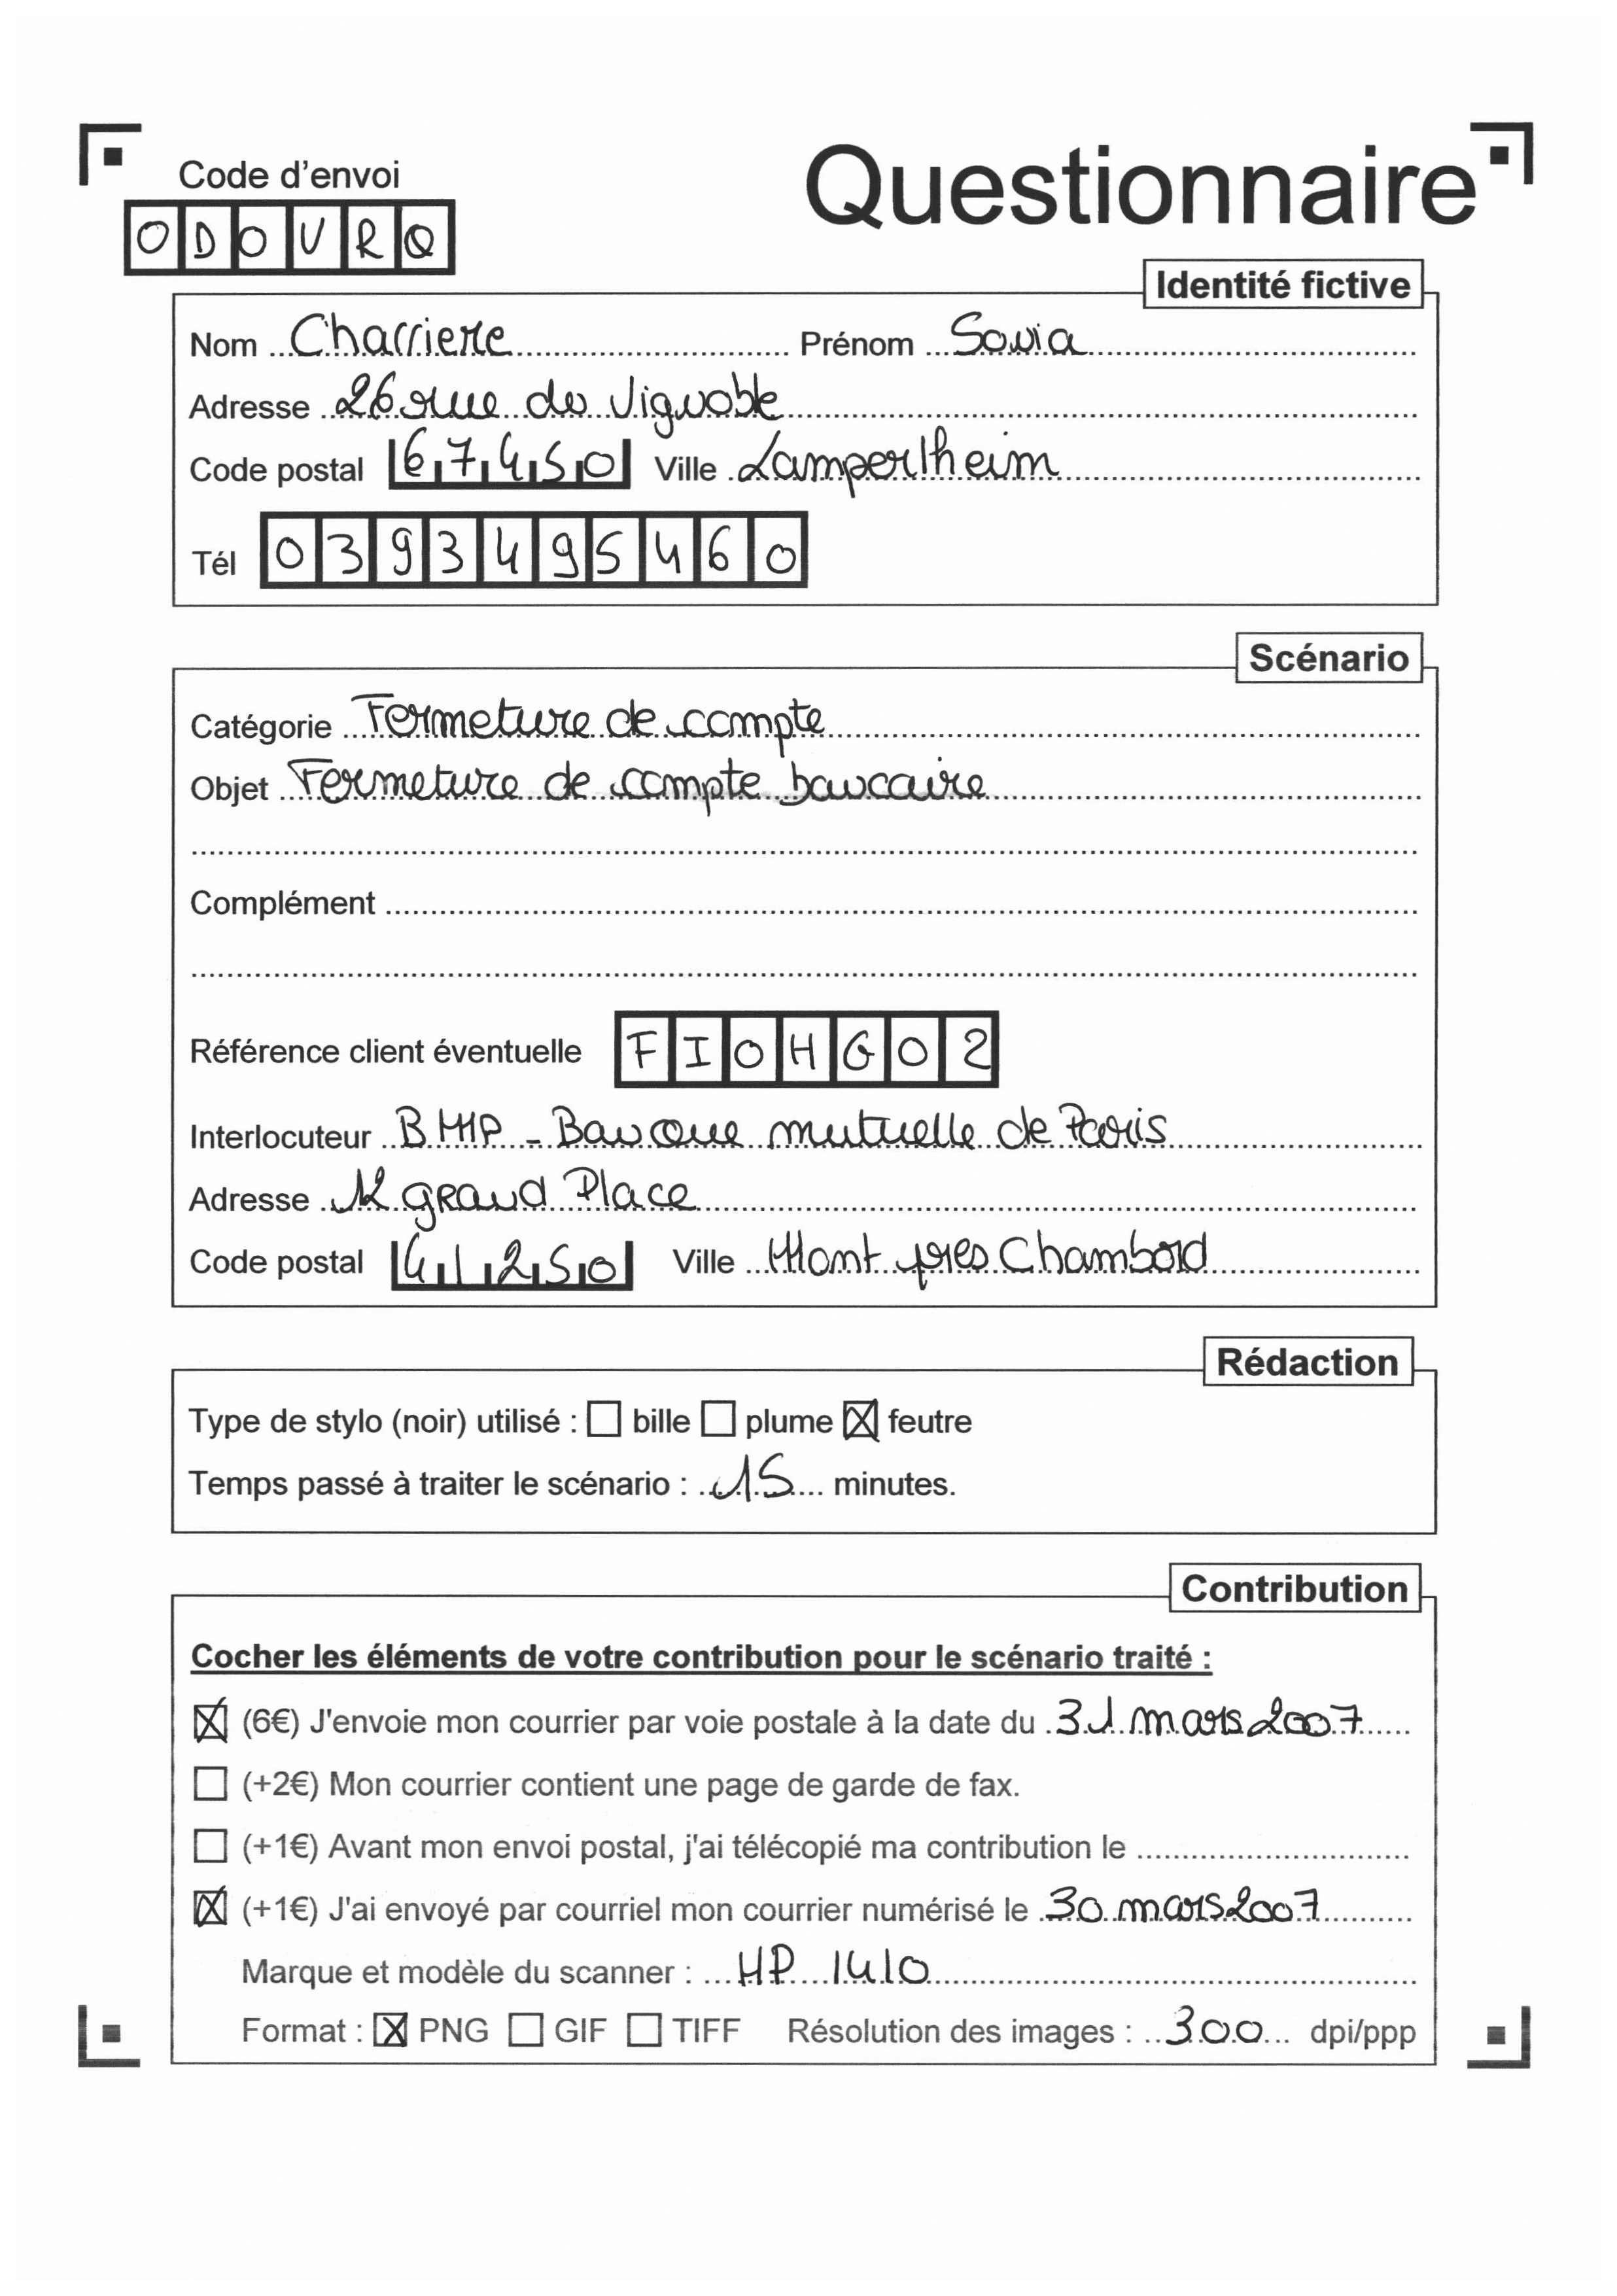 Code d'envoi
Questionnaire
ODOVRQ
Identité fictive
Nom Charriere Prénom Sonia
Adresse 26 rue du Vignoble
Code postal 67450 Ville Lampertheim
Tél 0393495460
Scénario
Catégorie Fermeture de compte
Objet Fermeture de compte bancaire
Complément
Référence client éventuelle FIOHG02
Interlocuteur BMP - Banque mutuelle de Paris
Adresse 12 grand Place
Code postal 41250 Ville Mont pres Chambord
Rédaction
Type de stylo (noir) utilisé : bille plume feutre
Temps passé à traiter le scénario : 15 minutes.
Contribution
Cocher les éléments de votre contribution pour le scénario traité :
(6€) J'envoie mon courrier par voie postale à la date du 31 mars 2007
(+2€) Mon courrier contient une page de garde de fax.
(+1€) Avant mon envoi postal, j'ai télécopié ma contribution le
(+1€) J'ai envoyé par courriel mon courrier numérisé le 30 mars 2007
Marque et modèle du scanner : HP 1410
Format : PNG GIF TIFF Résolution des images : 300 dpi/ppp